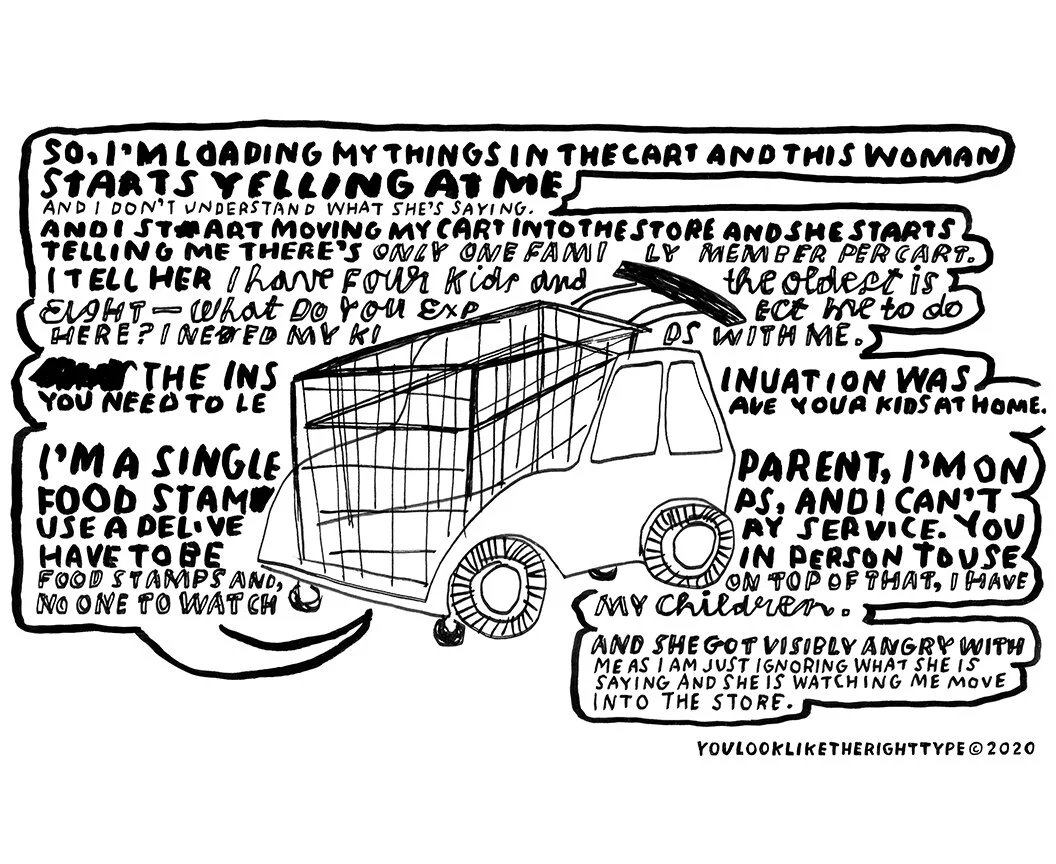 SO, I'M LOADING MY THINGS IN THE CART AND THIS WOMAN
STARTS YELLING AT ME
AND I DON'T UNDERSTAND WHAT SHE'S SAYING.
AND I START MOVING MY CART INTO THE STORE AND SHE STARTS
TELLING ME THERE'S ONLY ONE FAMILY MEMBER PER CART.
I TELL HER I have FOUR Kids and the oldest is
EIGHT — What DO YOU EXPECT me to do
HERE? I NEEDED MY KIDS WITH ME.
THE INSINUATION WAS
YOU NEED TO LEAVE YOUR KIDS AT HOME.
I'M A SINGLE PARENT, I'M ON
FOOD STAMPS, AND I CAN'T
USE A DELIVERY SERVICE. YOU
HAVE TO BE IN PERSON TO USE
FOOD STAMPS AND, ON TOP OF THAT, I HAVE
NO ONE TO WATCH MY children.
AND SHE GOT VISIBLY ANGRY WITH
ME AS I AM JUST IGNORING WHAT SHE IS
SAYING AND SHE IS WATCHING ME MOVE
INTO THE STORE.
YOULOOKLIKETHERIGHTTYPE©2020